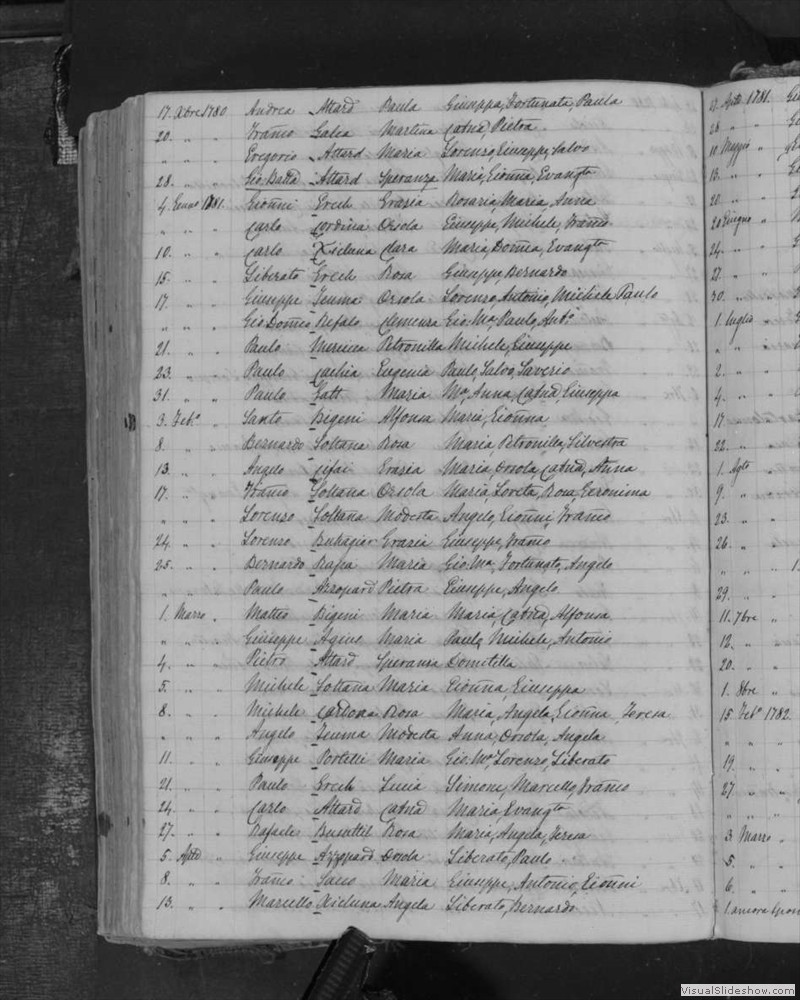 17. Xbre 1780 Andrea Attard Paula Giuseppa, Fortunata, Paula
20. " " Franco Galea Martina Catna, Pietra
" " " Gregorio Attard Maria Lorenzo, Giuseppe, Salvo
28. " " Gio Batta Attard Speranza Maria, Gionna, Evangta
4. Genno 1781. Gionni Grech Grazia Rosaria, Maria, Anna
" " " Carlo Cordina Orsola Giuseppe, Michele, Franco
10. " " Carlo Xicluna Clara Maria, Domca, Evangta
15. " " Liberato Grech Rosa Giuseppe, Bernardo
17. " " Giuseppe Zemma Orsola Lorenzo, Antonio, Michele Paulo
" " " Gio Domco Refalo Clemenza Gio: Ma Paulo, Anto
21. " " Paulo Mercieca Petronilla Michele, Giuseppe
23. " " Paulo Cachia Eugenia Paulo, Salvo, Saverio
31. " " Paulo Gatt Maria Ma Anna, Catna, Giuseppa
3. Febo " Santo Bigeni Alfonsa Maria, Gionna
8. " " Bernardo Soltana Rosa Maria, Petronilla, Silvestra
13. " " Angelo Cifai Grazia Maria, Orsola, Catna, Anna
17. " " Franco Soltana Orsola Maria, Loreta, Rosa, Geronima
" " " Lorenzo Soltana Modesta Angelo, Gionni, Franco
24. " " Lorenzo Buhagiar Grazia Giuseppe, Franco
25. " " Bernardo Rapa Maria Gio: Ma, Fortunato, Angelo
" " " Paulo Azzopard Pietra Giuseppe, Angelo
1. Marzo " Matteo Bigeni Maria Maria, Catna, Alfonsa
" " " Giuseppe Agius Maria Paulo, Michele, Antonio
4. " " Pietro Attard Speranza Domitilla
5. " " Michele Soltana Maria Gionna, Giuseppa
8. " " Michele Cardona Rosa Maria, Angela, Gionna, Teresa
" " " Angelo Zemma Modesta Anna, Orsola, Angela
11. " " Giuseppe Portelli Maria Gio: Ma, Lorenzo, Liberato
21. " " Paulo Grech Lucia Simone, Marcello, Franco
24. " " Carlo Attard Catna Maria, Evangta
27. " " Rafaele Busuttil Rosa Maria, Angela, Teresa
5. Aple " Giuseppe Azzopard Orsola Liberato, Paulo
8. " " Franco Sacco Maria Giuseppe, Antonio, Gionni
13. " " Marcello Xicluna Angela Liberato, Bernardo
Aple 1781.
28. " "
10 Maggio "
13. " "
20. " "
20 Giugno "
24. " "
27. " "
30. " "
1. Luglio "
" " "
2. " "
4. " "
17. " "
22. " "
1. Agto "
9. " "
23. " "
26. " "
29. " "
11. 7bre "
12. " "
20. " "
1. 8bre "
15. Febo 1782.
" " "
19. " "
27. " "
" " "
3. Marzo "
5. " "
6. " "
VisualSlideshow.com